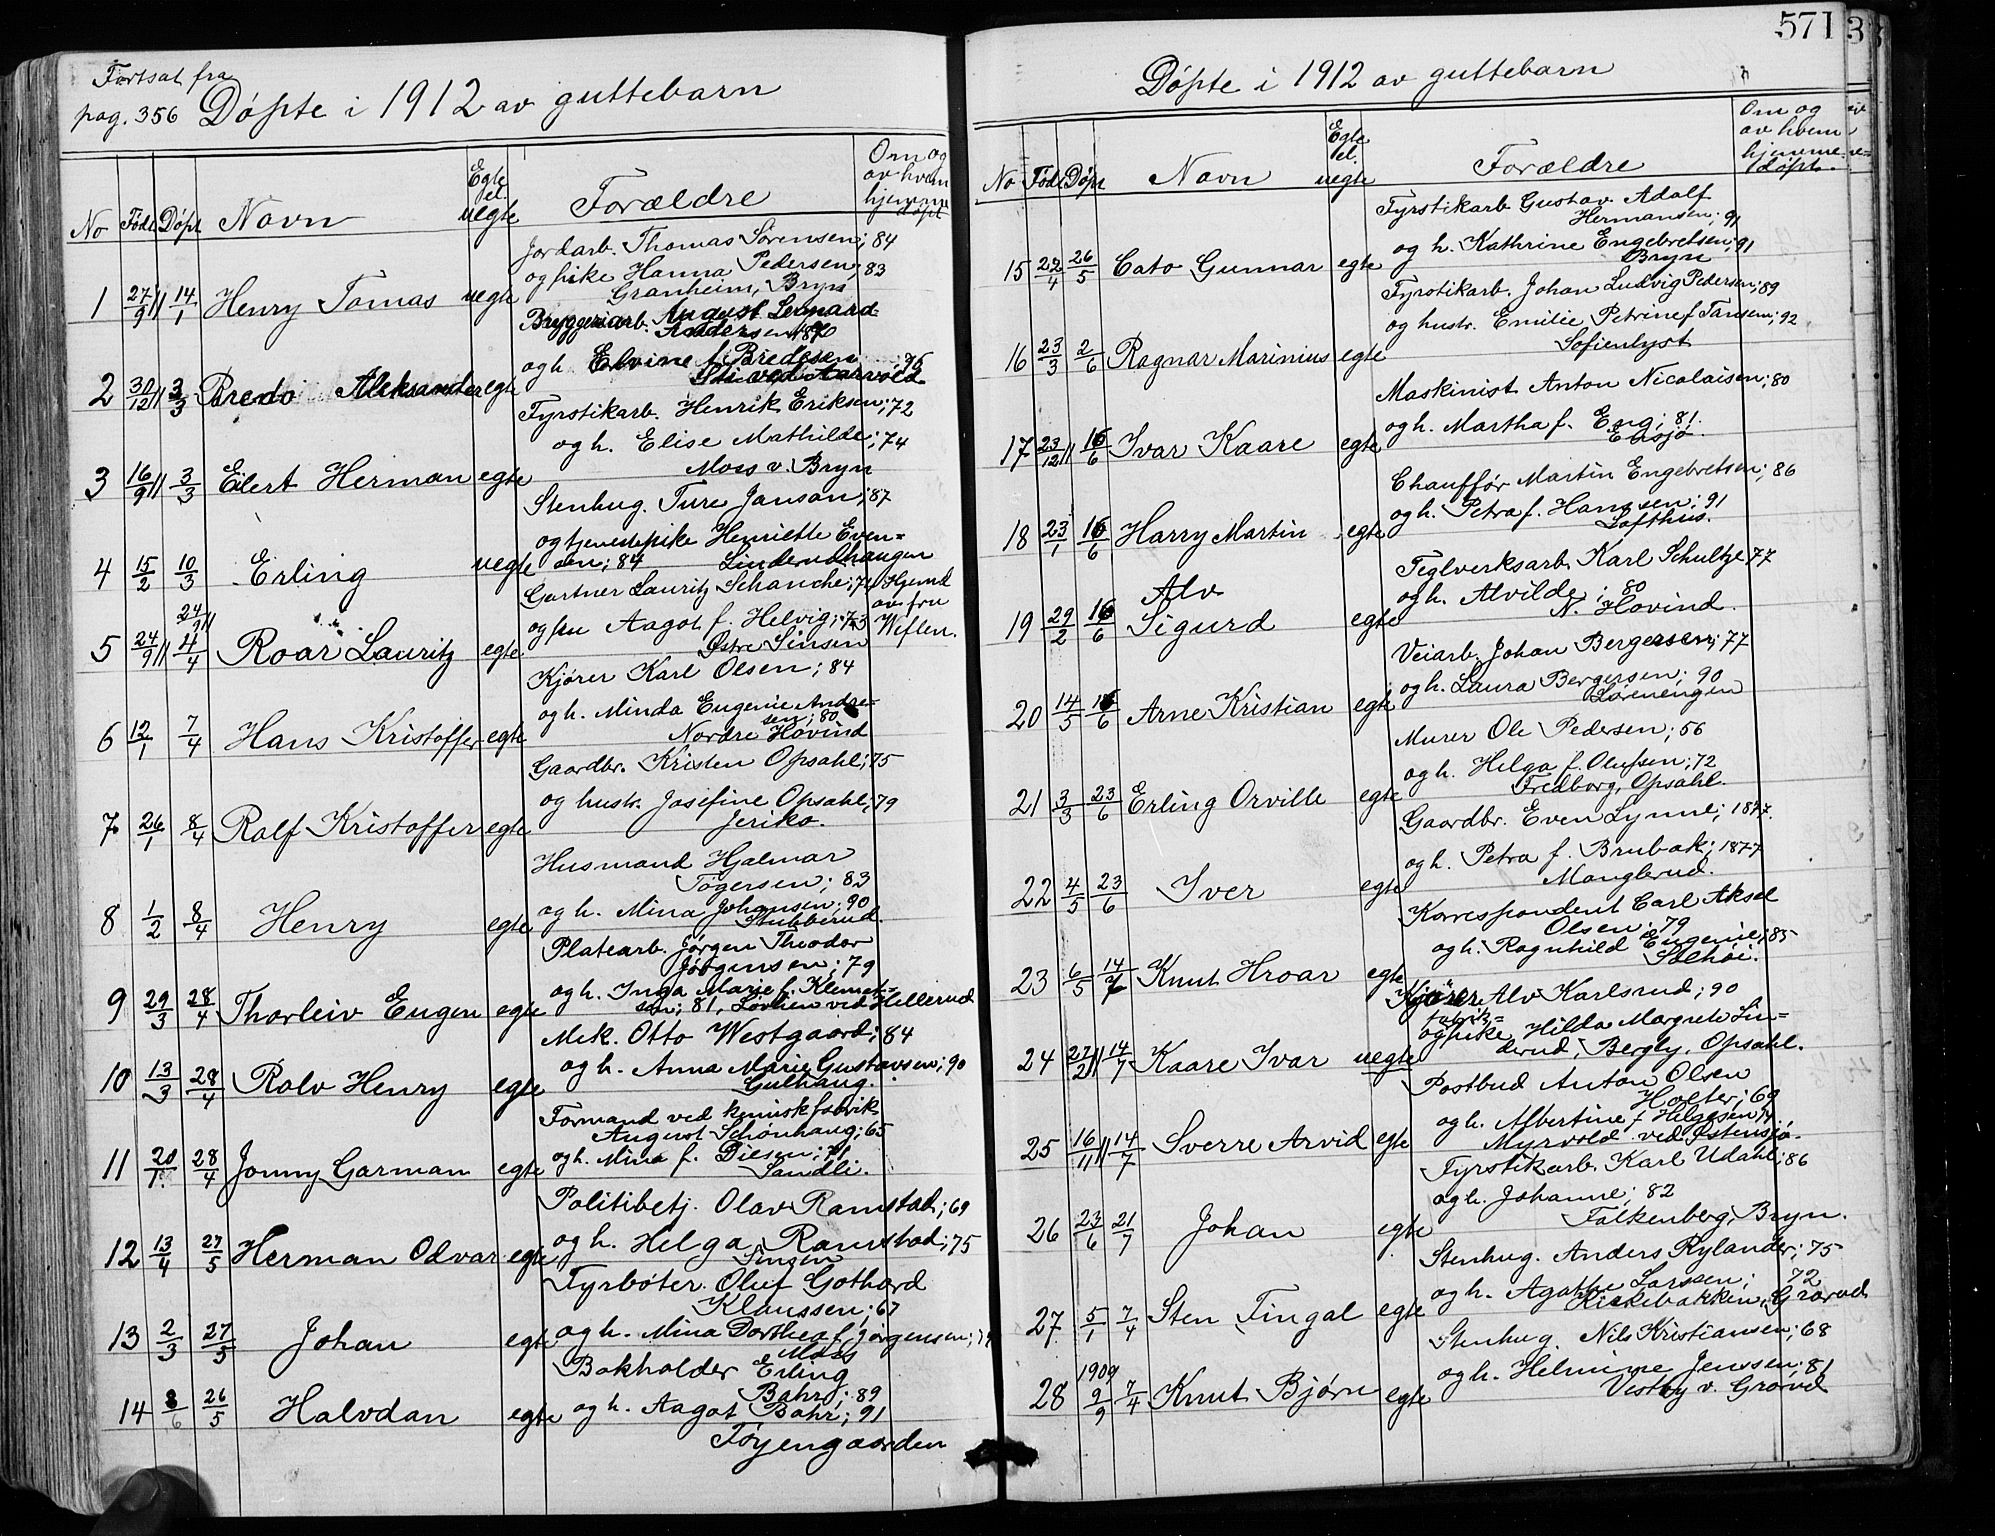 Fortsat fra
pag. 356 Døpte i 1912 av guttebarn
No Født Døpt Navn Egte el. uegte Forældre Om og av hvem hjemmedøpt
Jordarb. Thomas Sørensen; 84
og pike Hanna Pedersen; 83
Granheim, Bryn
1 27/9 11 14/1 Henry Tomas uegte
Bryggeriarb. August Leonard
Andersen 1870
og h. Elvine f. Bredesen 75
ved Aarvold
2 30/12 11 3/3 Bredo Aleksander egte
Fyrstikarb. Henrik Eriksen; 72
og h. Elise Mathilde; 74
Moss v. Bryn
3 16/9 11 3/3 Eilert Herman egte
Stenhug. Ture Janson; 87
og tjenestepike Henriette Even=
sen; 84 Linderudhaugen
4 15/2 10/3 Erling uegte
Gartner Lauritz Schanche; 71 Hjemd
og fru Aagot f. Helvig; 73 av fru
Østre Sinsen
5 24/9 11 24/9 11 4/4 Roar Lauritz egte
Kjører Karl Olsen; 84
og h. Minda Eugenie Andre=
sen; 80
Nordre Hovind
6 12/1 7/4 Hans Kristoffer egte
Gaardbr. Kristen Opsahl; 75
og hustr. Josefine Opsahl; 79
Jeriko.
7 26/1 8/4 Rolf Kristoffer egte
Husmand Hjalmar
Togersen; 83
og h. Mina Johansen; 90
Stubberud.
8 1/2 8/4 Henry egte
Platearb. Jørgen Theodor
Jørgensen; 79
og h. Inga Marie f. Klemet=
sen; 81, Lövlien ved Hellerud
9 29/3 28/4 Thorleiv Eugen egte
Mek. Otto Westgaard; 84
og h. Anna Marie Gustavsen; 90
Gulhaug.
10 13/3 28/4 Rolv Henry egte
Formand ved kemisk fabrik
August Schønhaug; 65
og h. Mina f. Diesen; 71
Sandli.
11 20/1 28/4 Jonny Garman egte
Politibetj. Olav Ramstad; 69
og h. Helga Ramstad; 75
Sinsen
12 13/4 27/5 Herman Odvar egte
Fyrbøter Oluf Gothard
Klaussen; 67
og h. Mina Dorthea f. Jørgensen;
Moss
13 2/3 27/5 Johan egte
Bokholder Erling
Bahr; 89
og h. Aagot Bahr; 91
Tøyengaarden
14 8/6 26/5 Halvdan egte
571
Døpte i 1912 av guttebarn
No Født Døpt Navn Egte el. uegte Forældre Om og av hvem hjemme-døpt.
Fyrstikarb Gustav Adolf
Hermansen; 91
og h. Kathrine Engebretsen; 91
Bryn
15 22/4 26/5 Cato Gunnar egte
Fyrstikarb. Johan Ludvig Pedersen; 89
og hustr. Emilie Petrine f Tansem; 92
Sofienlyst
16 23/3 2/6 Ragnar Marinius egte
Maskinist Anton Nicolaisen; 80
og h. Martha f. Eng; 81.
Ensjø.
17 23/12 11 16/6 Ivar Kaare egte
Chauffør Martin Engebretsen; 86
og h. Petra f. Hanssen; 91
Lofthus.
18 23/1 16/6 Harry Martin egte
Teglverksarb. Karl Schultze 77
og h. Alvilde; 80
N. Hovind.
19 29/2 16/6 Alv Sigurd egte
Veiarb. Johan Bergersen; 77
og h. Laura Bergersen; 90
Lørenengen
20 14/5 16/6 Arne Kristian egte
Murer Ole Pedersen; 56
og h. Helga f. Olufsen; 72
Fredborg, Opsahl.
21 3/3 23/6 Erling Orville egte
Gaardbr. Even Lynne; 1877.
og h. Petra f. Brubak; 1877
Manglerud.
22 4/5 23/6 Iver egte
Korrespondent Carl Aksel
Olsen; 79
og h. Ragnhild Eugenie; 85
Solhøi.
23 6/5 14/7 Knut Hroar egte
Kjører Alv Karlsrud; 90
fabrik=
og pike Hilda Margrete Lin=
derud, Bergly, Opsahl.
24 27/2 11 14/7 Kaare Ivar uegte
Postbud Anton Olsen
Holter; 69
og h. Albertine f Helgesen 74
Myrvold ved Østensjø.
25 16/11 11 14/7 Sverre Arvid egte
Fyrstikarb. Karl Udahl; 86
og h. Johanne; 82
Falkenberg, Bryn.
26 23/6 21/7 Johan egte
Stenhug. Anders Rylander; 75
og h. Agathe Larssen; 72
Kirkebakken, Grorud
27 5/1 7/4 Sten Fingal egte
Stenhug. Nils Kristiansen; 68
og h. Helmine Jenssen; 81
Vestby v. Grorud
28 1909 9/9 7/4 Knut Bjørn egte